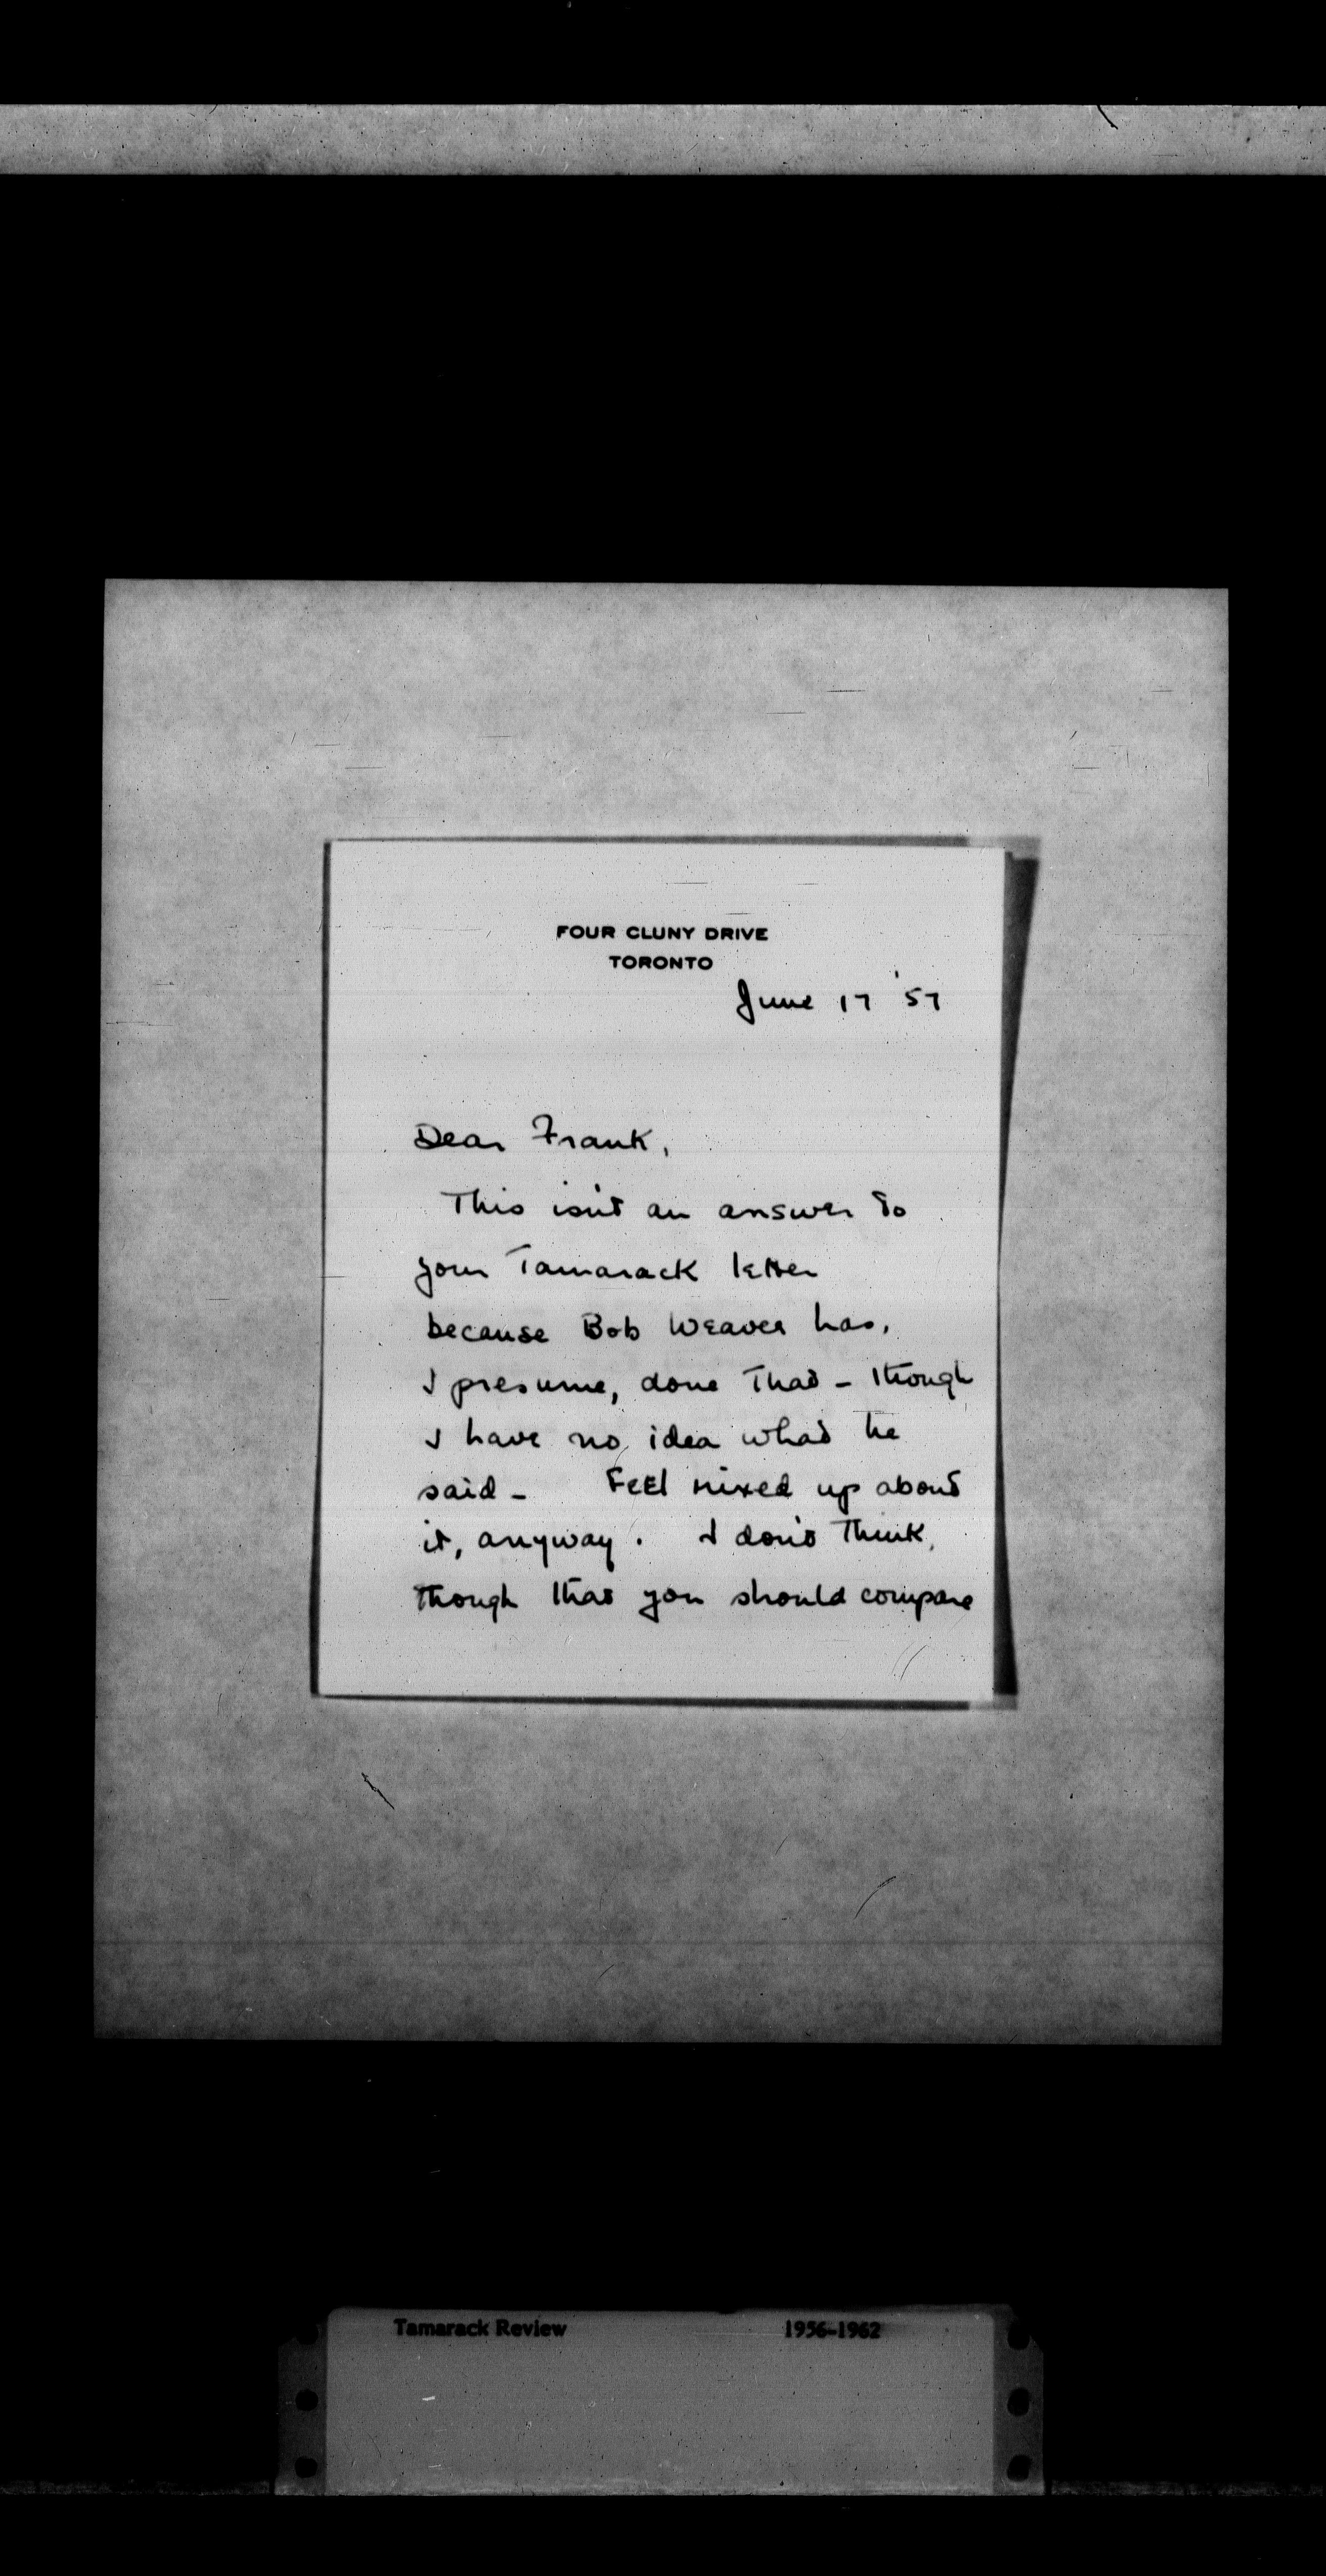 FOUR CLUNY DRIVE
TORONTO
June 17 '57
Dear Frank,
This isn't an answer to
your Tamarack letter
because Bob Weaver has,
I presume, done that - though
I have no idea what he
said - Feel mixed up about
it, anyway. I don't think,
though that you should compare
Tamarack Review 1956-1962